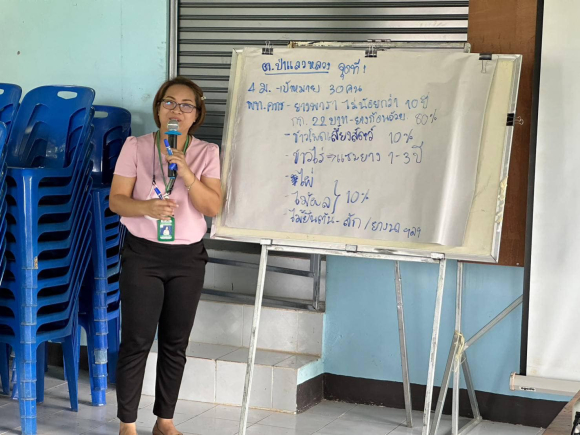 ต.ป่าแลวหลวง จุดที่ 1
4 ม. - เป้าหมาย 30 คน
- ยางพารา ไม่น้อยกว่า 10 ปี
22 บาท - ยางก้อนถ้วย 80%
- ข้าวโพดเลี้ยงสัตว์ 10%
- ข้าวไร่ แซมยาง 1-3 ปี
- ไผ่
- ไม้ผล 10%
- ไม้ยืนต้น - สัก / ยางนา